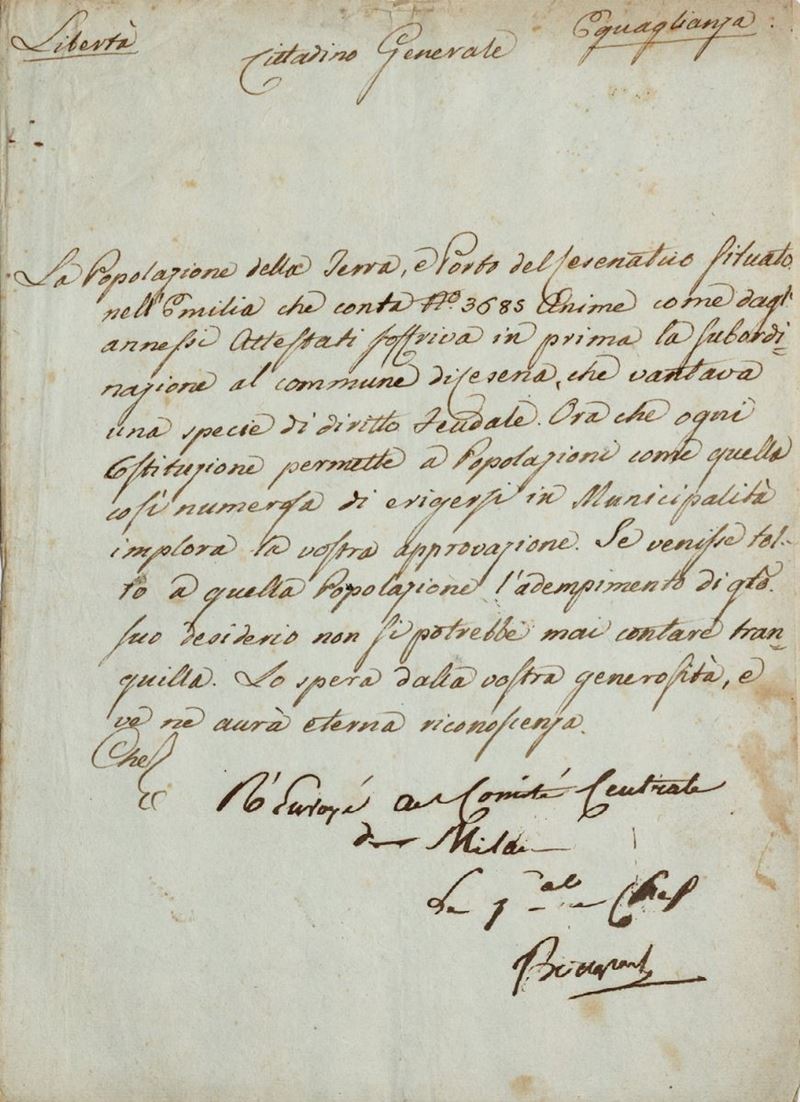 Libertà
Cittadino Generale
Eguaglianza
La Popolazione della Terra, e Porto del Cesenatico situato
nell'Emilia che conta No. 3685 Anime come dagl'
annessi Attestati soffriva in prima la subordi=
nazione al commune di Cesena, che vantava
una specie di diritto Feudale. Ora che ogni
Costituzione permette a Popolazioni come quella
così numerosa di erigersi in Municipalità
implora la vostra approvazione. Se venisse tol-
to a quella Popolazione l'adempimento di qto.
suo desiderio non si potrebbe mai contare tran=
quilla. Lo spera dalla vostra generosità, e
ve ne aurà eterna riconoscenza.
Che
Renvoyé au Comité Centrale
de Milan
Le gal en Chef
Buonaparte